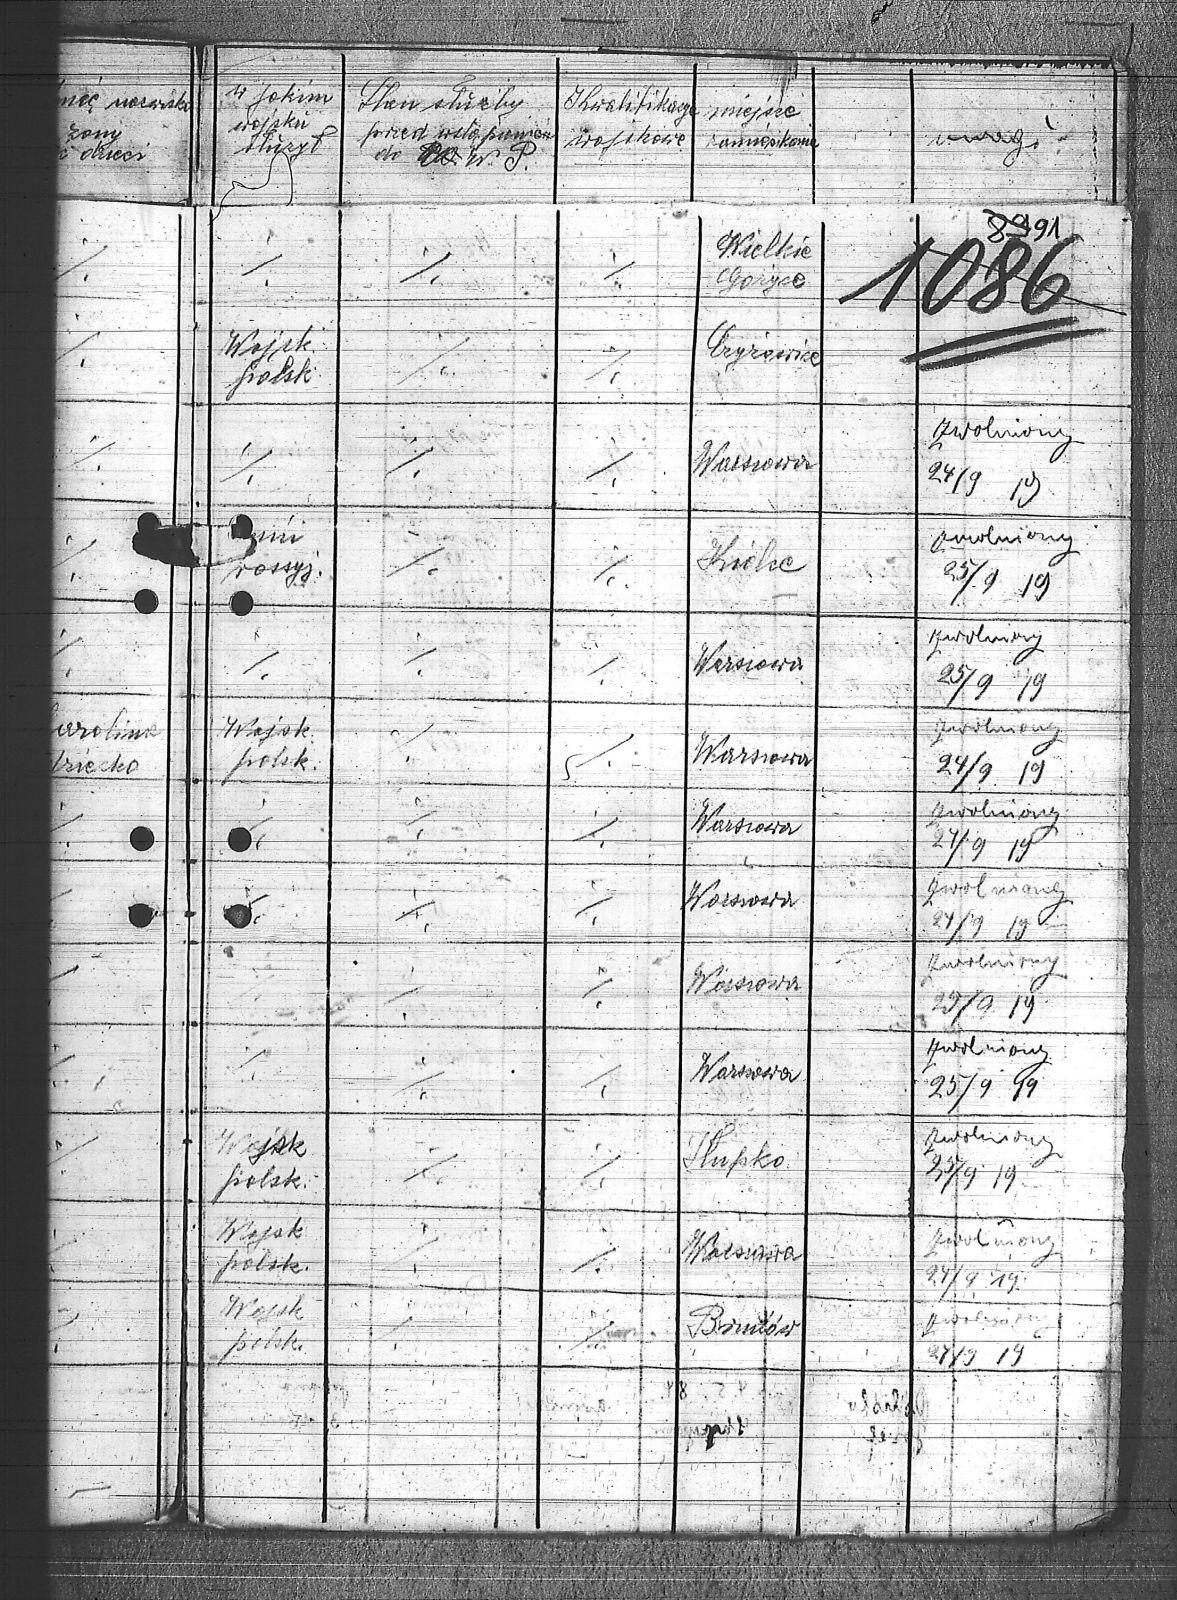 w jakim
wojsku
służył
żony
i dzieci
Stan służby
przed wstąpieniem
do W. P.
Kwalifikacje
wojskowe
miejsce
zamieszkania
uwagi
8991
1086
Wielkie
Gorzyce
Wojsk
polsk
Czyżowice
Warszowa
Zwolniony
24/9 19
rossyj.
Kielce
Zwolniony
25/9 19
Warszowa
Zwolniony
25/9 19
Karolina
dziecko
Wojsk.
polsk.
Warszowa
Zwolniony
24/9 19
Warszowa
Zwolniony
24/9 19
Warszowa
Zwolniony
24/9 19
Warszowa
Zwolniony
25/9 19
Warszowa
Zwolniony
25/9 19
Wojsk
polsk.
Słupko
Zwolniony
25/9 19
Wojsk
polsk.
Warszowa
Zwolniony
24/9 19
Wojsk
polsk.
Zwolniony
27/9 19